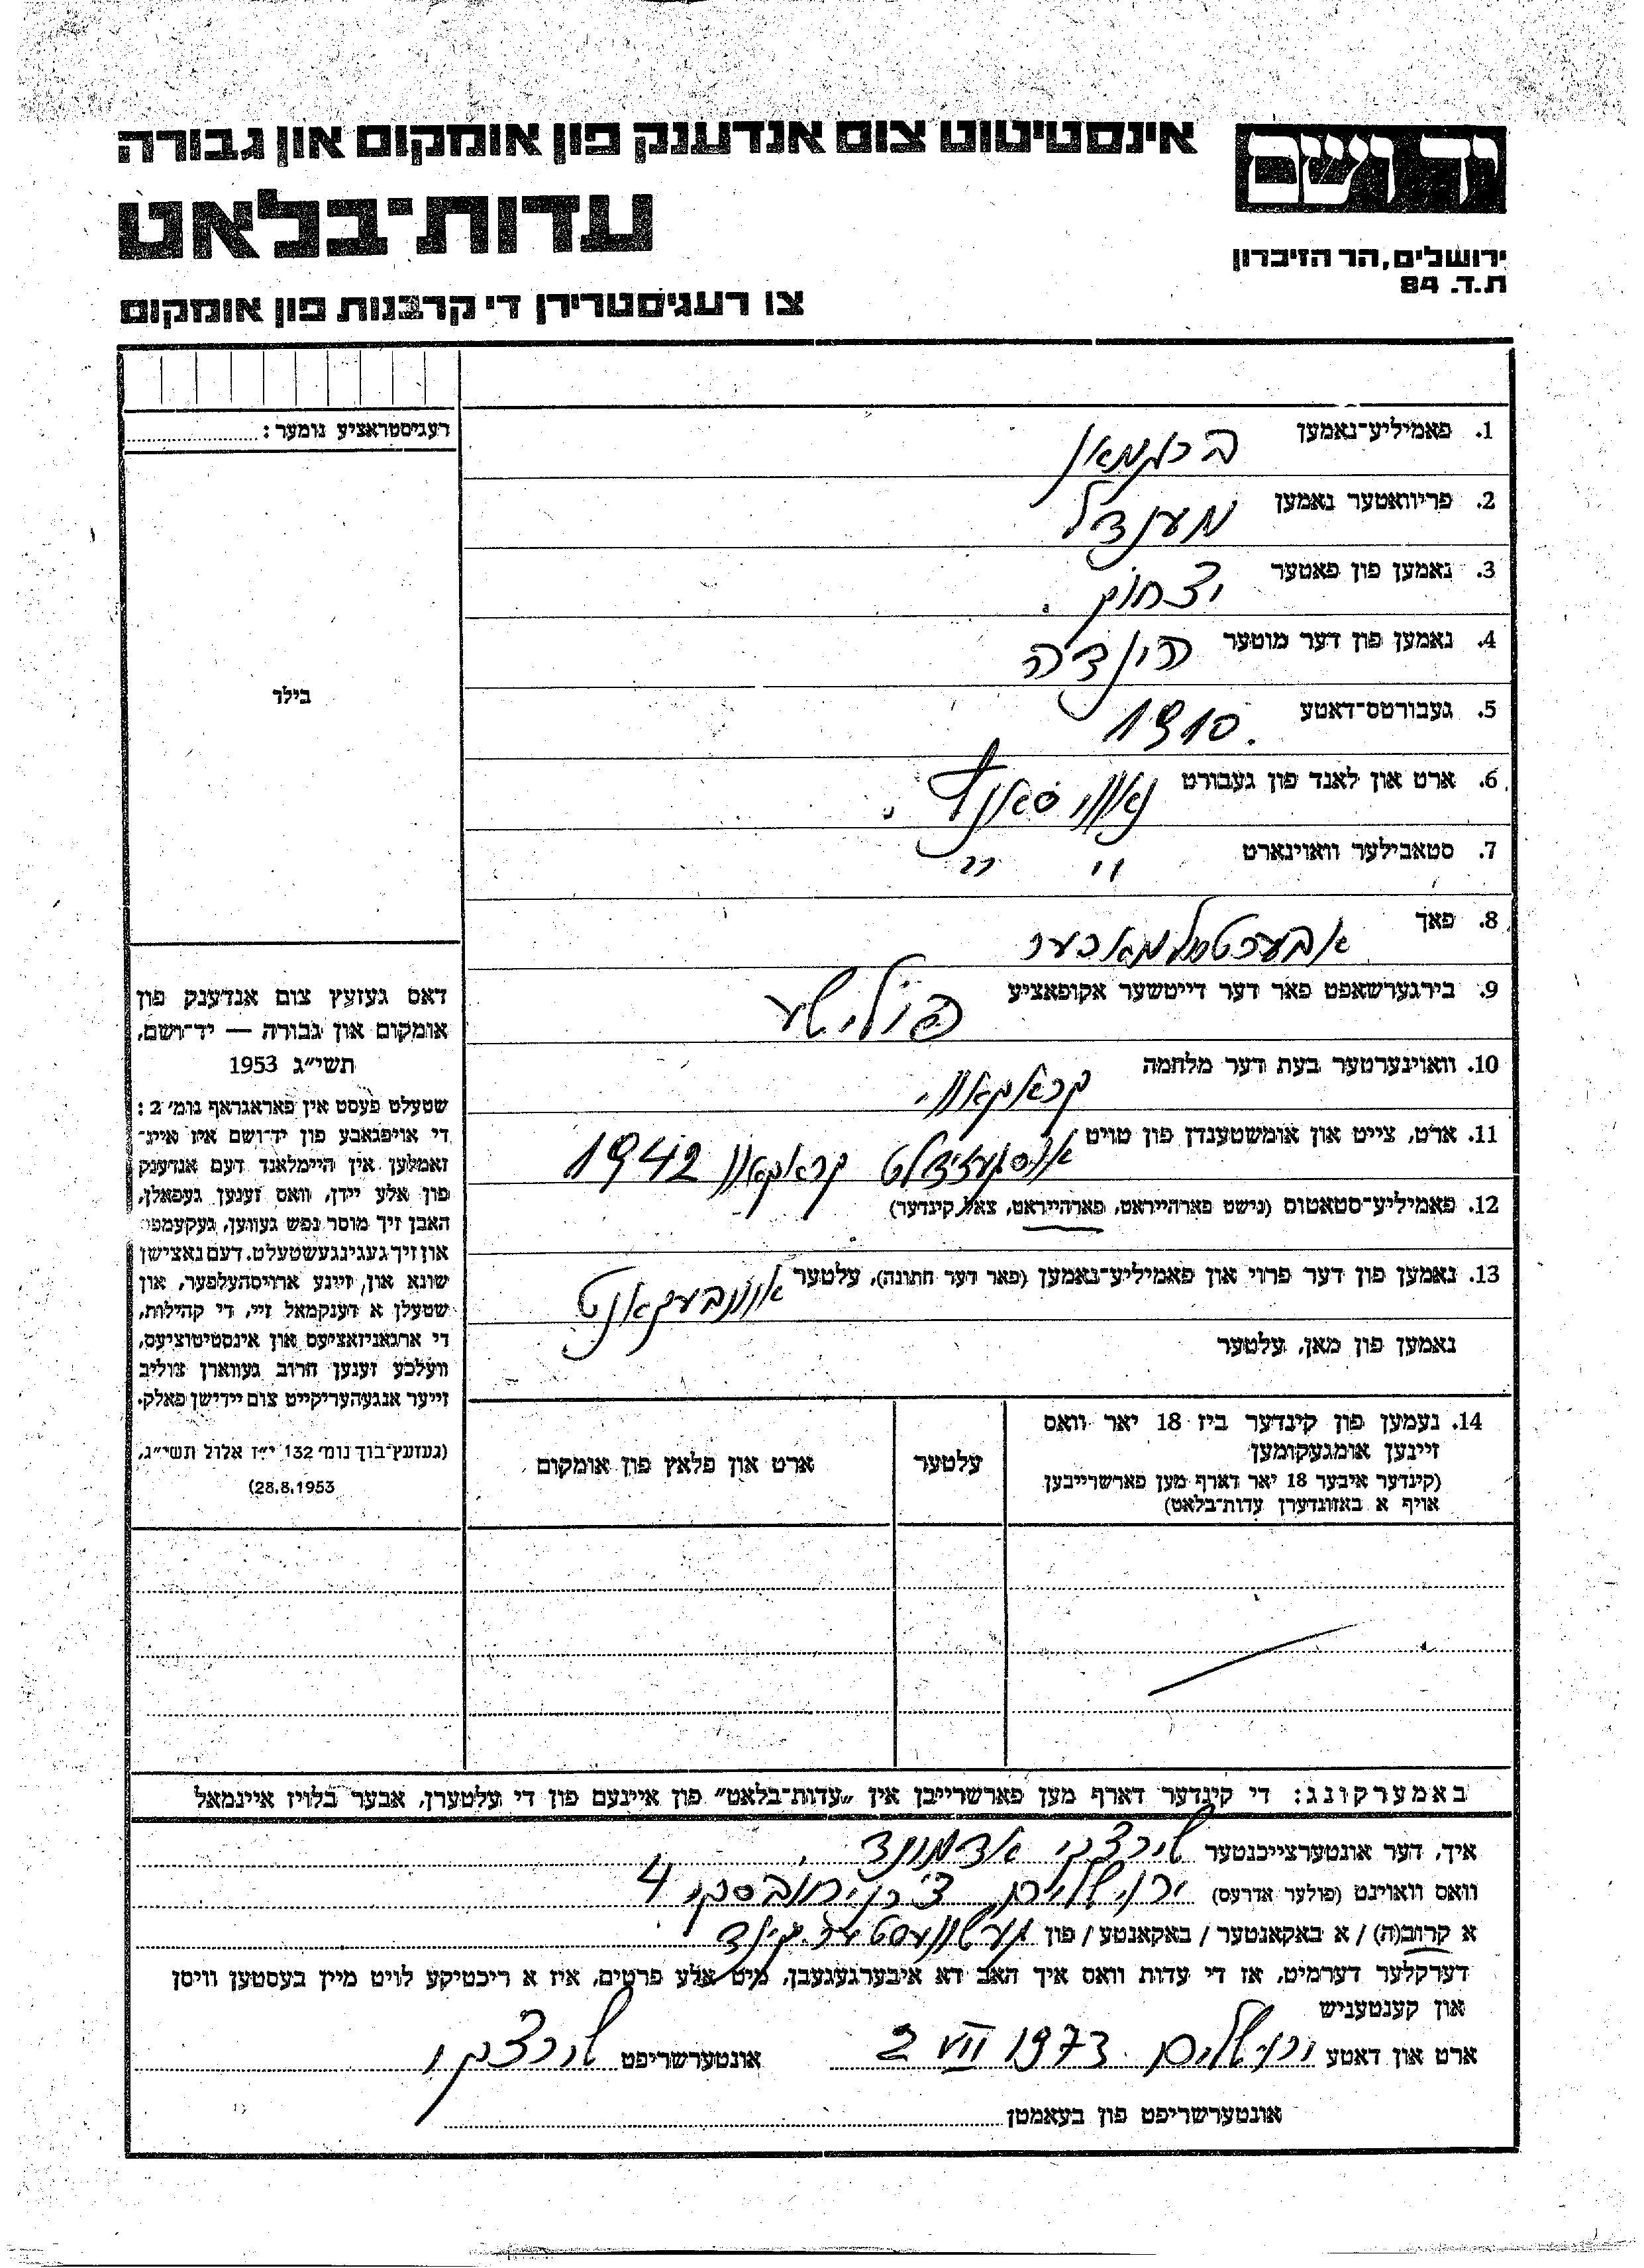 יד ושם
אינסטיטוט צום אנדענק פון אומקום און גבורה
עדות־בלאט
ירושלים, הר הזיכרון
ת.ד. 84
צו רעגיסטרירן די קרבנות פון אומקום
רעגיסטראציע נומער:
בילד
דאס געזעץ צום אנדענק פון
אומקום און גבורה — יד־ושם,
תשי״ג 1953
שטעלט פעסט אין פאראגראף נומ׳ 2:
די אויפגאבע פון יד־ושם איז איינ־
זאמלען אין היימלאנד דעם אנדענק
פון אלע יידן, וואס זענען געפאלן,
האבן זיך מוסר נפש געווען, געקעמפט
און זיך געגינגעשטעלט. דעם נאצישן
שונא און זיינע ארויסהעלפער, און
שטעלן א דענקמאל זיי, די קהילות,
די ארגאניזאציעס און אינסטיטוציעס,
וועלכע זענען חרוב געווארן צוליב
זייער אנגעהעריקייט צום יידישן פאלק.
(געזעץ־בוך נומ׳ 132 י״ז אלול תשי״ג,
28.8.1953)
1. פאמיליע־נאמען ברגמאן
2. פריוואטער נאמען מענדל
3. נאמען פון פאטער יצחוק
4. נאמען פון דער מוטער הינדה
5. געבורטס־דאטע 1910
6. ארט און לאנד פון געבורט
7. סטאבילער וואוינארט " "
8. פאך
9. בירגערשאפט פאר דער דייטשער אקופאציע פוליש
10. וואוינערטער בעת דער מלחמה קראקאוו
11. ארט, צייט און אומשטענדן פון טויט אויסגעזידלט קראקאוו 1942
12. פאמיליע־סטאטוס (נישט פארהייראט, פארהייראט, צאל קינדער)
13. נאמען פון דער פרוי און פאמיליע־נאמען (פאר דער חתונה), עלטער אונבעקאנט
נאמען פון מאן, עלטער
14. נעמען פון קינדער ביז 18 יאר וואס
זיינען אומגעקומען
(קינדער איבער 18 יאר דארף מען פארשרייבן
אויף א באזונדערן עדות־בלאט)
עלטער
ארט און פלאץ פון אומקום
באמערקונג: די קינדער דארף מען פארשרייבן אין „עדות־בלאט״ פון איינעם פון די עלטערן, אבער בלויז איינמאל
איך, דער אונטערצייכנטער טורצקי אדמונד
וואס וואוינט (פולער אדרעס) ירושלים צ׳רניחובסקי 4
א קרוב(ה) / א באקאנטער / באקאנטע / פון געשוועסטער קינד
דערקלער דערמיט, אז די עדות וואס איך האב דא איבערגעגעבן, מיט אלע פרטים, איז א ריכטיקע לויט מיין בעסטען וויסן
און קענטעניש
ארט און דאטע ירושלים 2 VII 1973 אונטערשריפט טורצקי
אונטערשריפט פון בעאמטן